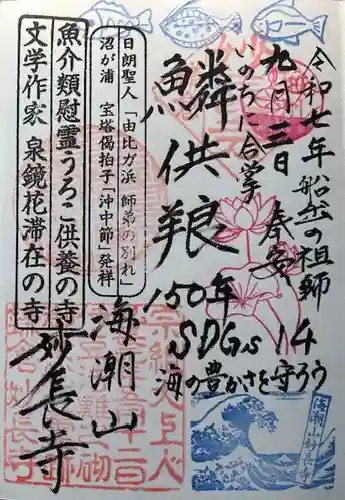 令和七年 船出の祖師
九月三日 奉安
いのちに合掌
鱗供養
150年
SDGs 14
海の豊かさを守ろう
日朗聖人「由比ガ浜 師弟の別れ」
沼が浦 宝塔偈拍子「沖中節」発祥
海潮山
魚介類慰霊うろこ供養の寺
文学作家 泉鏡花滞在の寺
妙長寺
海潮山妙長寺